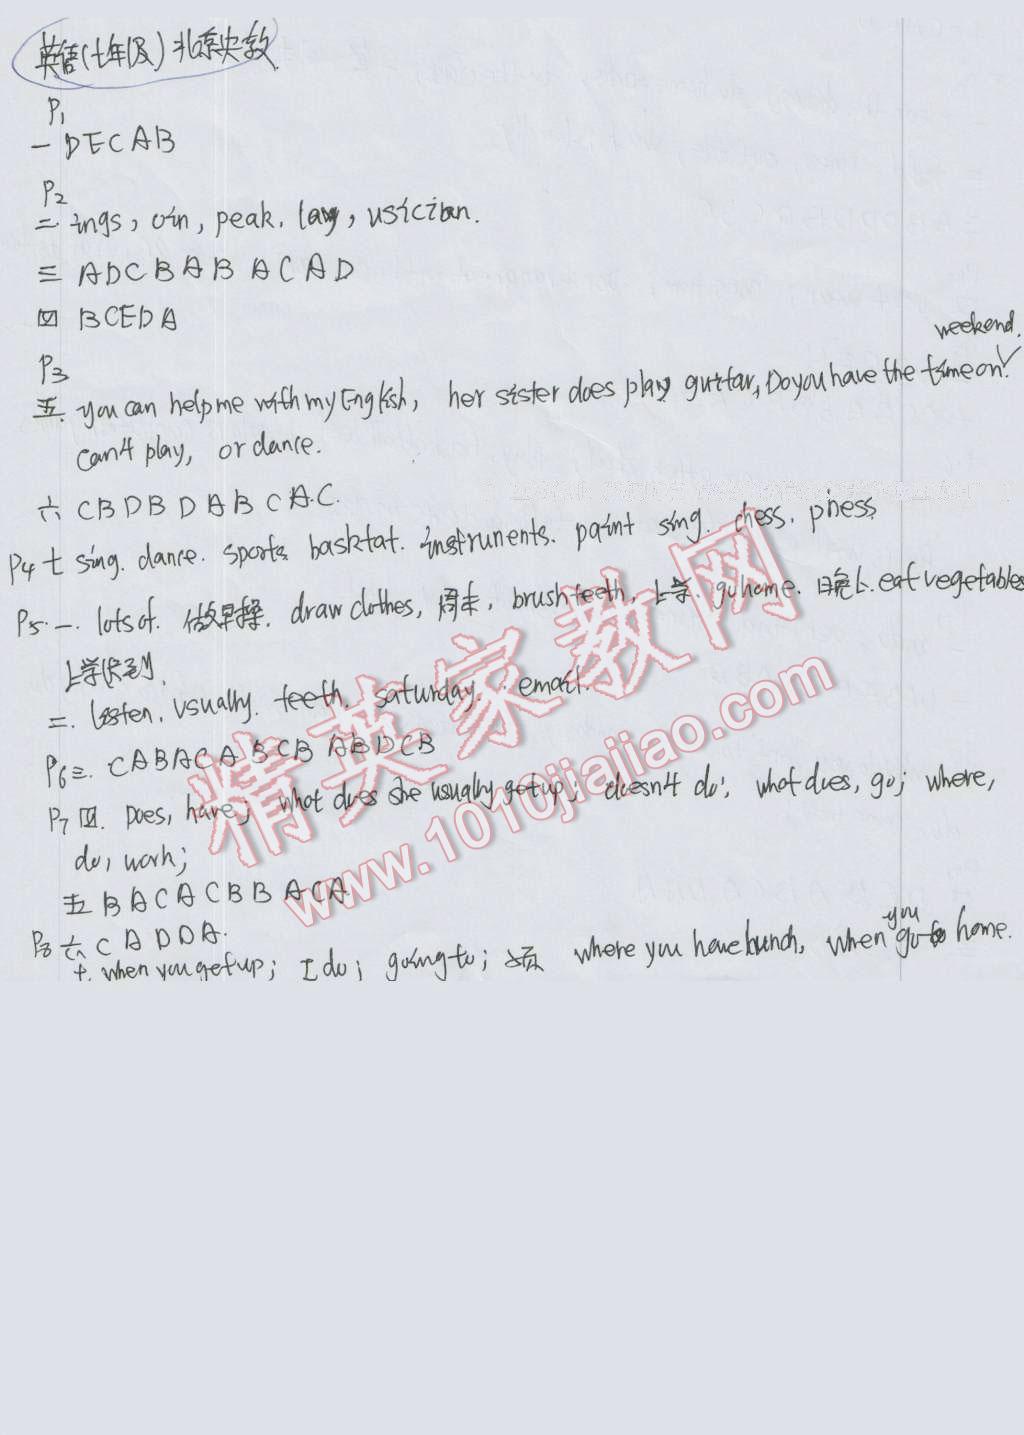 英语(七年级)北京央教
P1
一 DECAB
P2
二 ings, oin, peak, law, usician.
三 ADCBAB ACAD
四 BCEDA
weekend.
P3
五. you can help me with my English, her sister does play guitar, Do you have the time on
can't play, or dance.
六 CBDBDABCAC.
P4 七 sing. dance. sports. basktat. instrunents. paint sing. chess. pness
P5. 一. lots of. 做早操. draw clothes, 周末, brush teeth, 上学. go home. 晚上. eat vegetables
上学迟到.
二. listen, usually. teeth. saturday. email.
P6 三. CABACABCB ABDCB
P7 四. Does, have; what does she usually get up; doesn't do; what does, go; where,
do, work;
五 BACACBBACA
P8 六 CADDA.
you
七. when you get up; I do; going to; where you have lunch, when go to home.
精英家教网
www.1010jiajiao.com